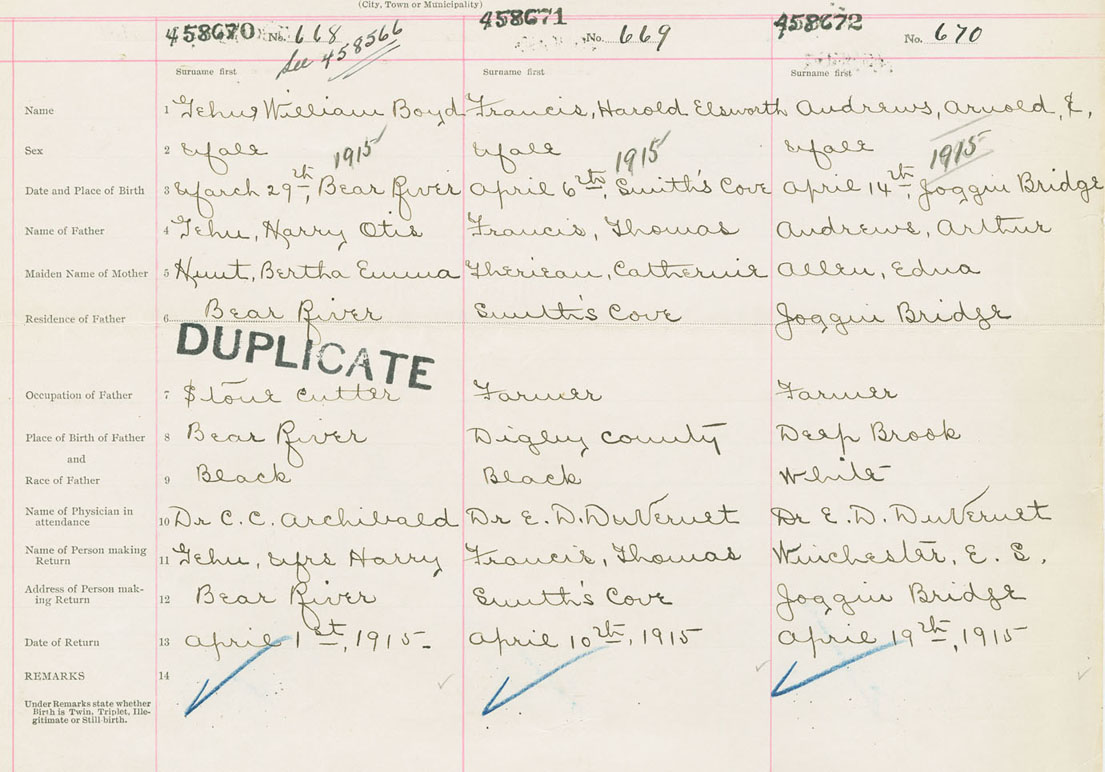 (City, Town or Municipality)
458670 No. 668 458671 No. 669 458672 No. 670
See 458566
Surname first Surname first Surname first
Name 1 Jehu, William Boyd Francis, Harold Elsworth Andrews, Arnold, E,
Sex 2 Male Male Male
1915 1915 1915
Date and Place of Birth 3 March 29th, Bear River April 6th, Smith's Cove April 14th, Joggin Bridge
Name of Father 4 Jehu, Harry Otis Francis, Thomas Andrews, Arthur
Maiden Name of Mother 5 Hunt, Bertha Emma Therieau, Catherine Allen, Edna
Residence of Father 6 Bear River Smith's Cove Joggin Bridge
DUPLICATE
Occupation of Father 7 Stone cutter Farmer Farmer
Place of Birth of Father 8 Bear River Digby County Deep Brook
and
Race of Father 9 Black Black White
Name of Physician in attendance 10 Dr C. C. Archibald Dr E. D. DuVernet Dr E. D. DuVernet
Name of Person making Return 11 Jehu, Mrs Harry Francis, Thomas Winchester, E. S.
Address of Person making Return 12 Bear River Smith's Cove Joggin Bridge
Date of Return 13 April 1st, 1915- April 10th, 1915 April 19th, 1915
REMARKS 14
Under Remarks state whether
Birth is Twin, Triplet, Ille-
gitimate or Still-birth.